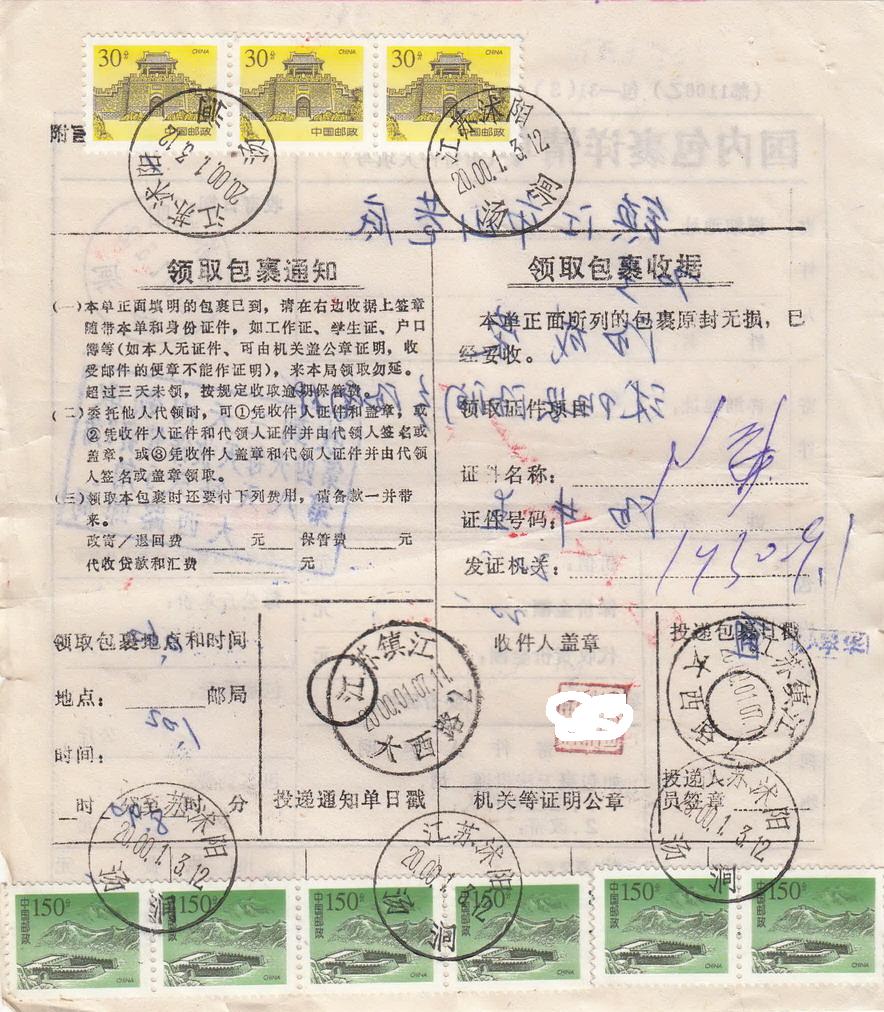 30分 CHINA 30分 CHINA 30分 CHINA
中国邮政 中国邮政 中国邮政
江苏沭阳 20.00.1.3.12 汤涧
江苏沭阳 20.00.1.3.12 汤涧
领取包裹通知
(一)本单正面填明的包裹已到，请在右边收据上签章
随带本单和身份证件，如工作证、学生证、户口
簿等(如本人无证件、可由机关盖公章证明，收
受邮件的便章不能作证明)，来本局领取勿延。
超过三天未领，按规定收取逾期保管费。
(二)委托他人代领时，可①凭收件人证件和盖章，或
②凭收件人证件和代领人证件并由代领人签名或
盖章，或③凭收件人盖章和代领人证件并由代领
人签名或盖章领取。
(三)领取本包裹时还要付下列费用，请备款一并带
来。
改寄／退回费 元 保管费 元
代收贷款和汇费 元
领取包裹收据
本单正面所列的包裹原封无损，已
经妥收。
领取证件项目
证件名称：
证件号码：
发证机关：
领取包裹地点和时间
地点： 邮局
时间：
时 分至 时 分
江苏镇江 2000.01.07.11 大西路2
投递通知单日戳
收件人盖章
机关等证明公章
投递包裹日戳
江苏镇江
大西路
投递人
员签章
江苏沭阳 20.00.1.3.12 汤涧
江苏沭阳 20.00.1.3.12 汤涧
江苏沭阳 20.00.1.3.12 汤涧
150分 150分 150分 150分 150分 150分
中国邮政 中国邮政 中国邮政 中国邮政 中国邮政 中国邮政
CHINA CHINA CHINA CHINA CHINA CHINA